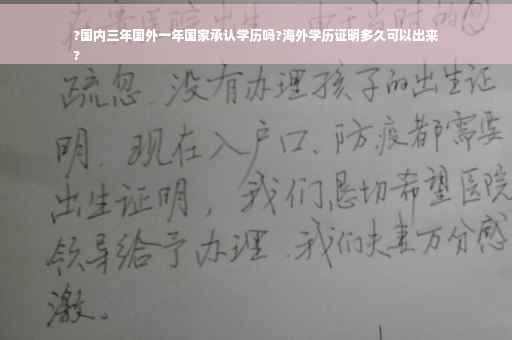 ?国内三年国外一年国家承认学历吗?海外学历证明多久可以出来
?
疏忽.没有办理孩子的出生证
明.现在入户口、防疫都需要
出生证明，我们恳切希望医院
领导给予办理.我们夫妻万分感
激。